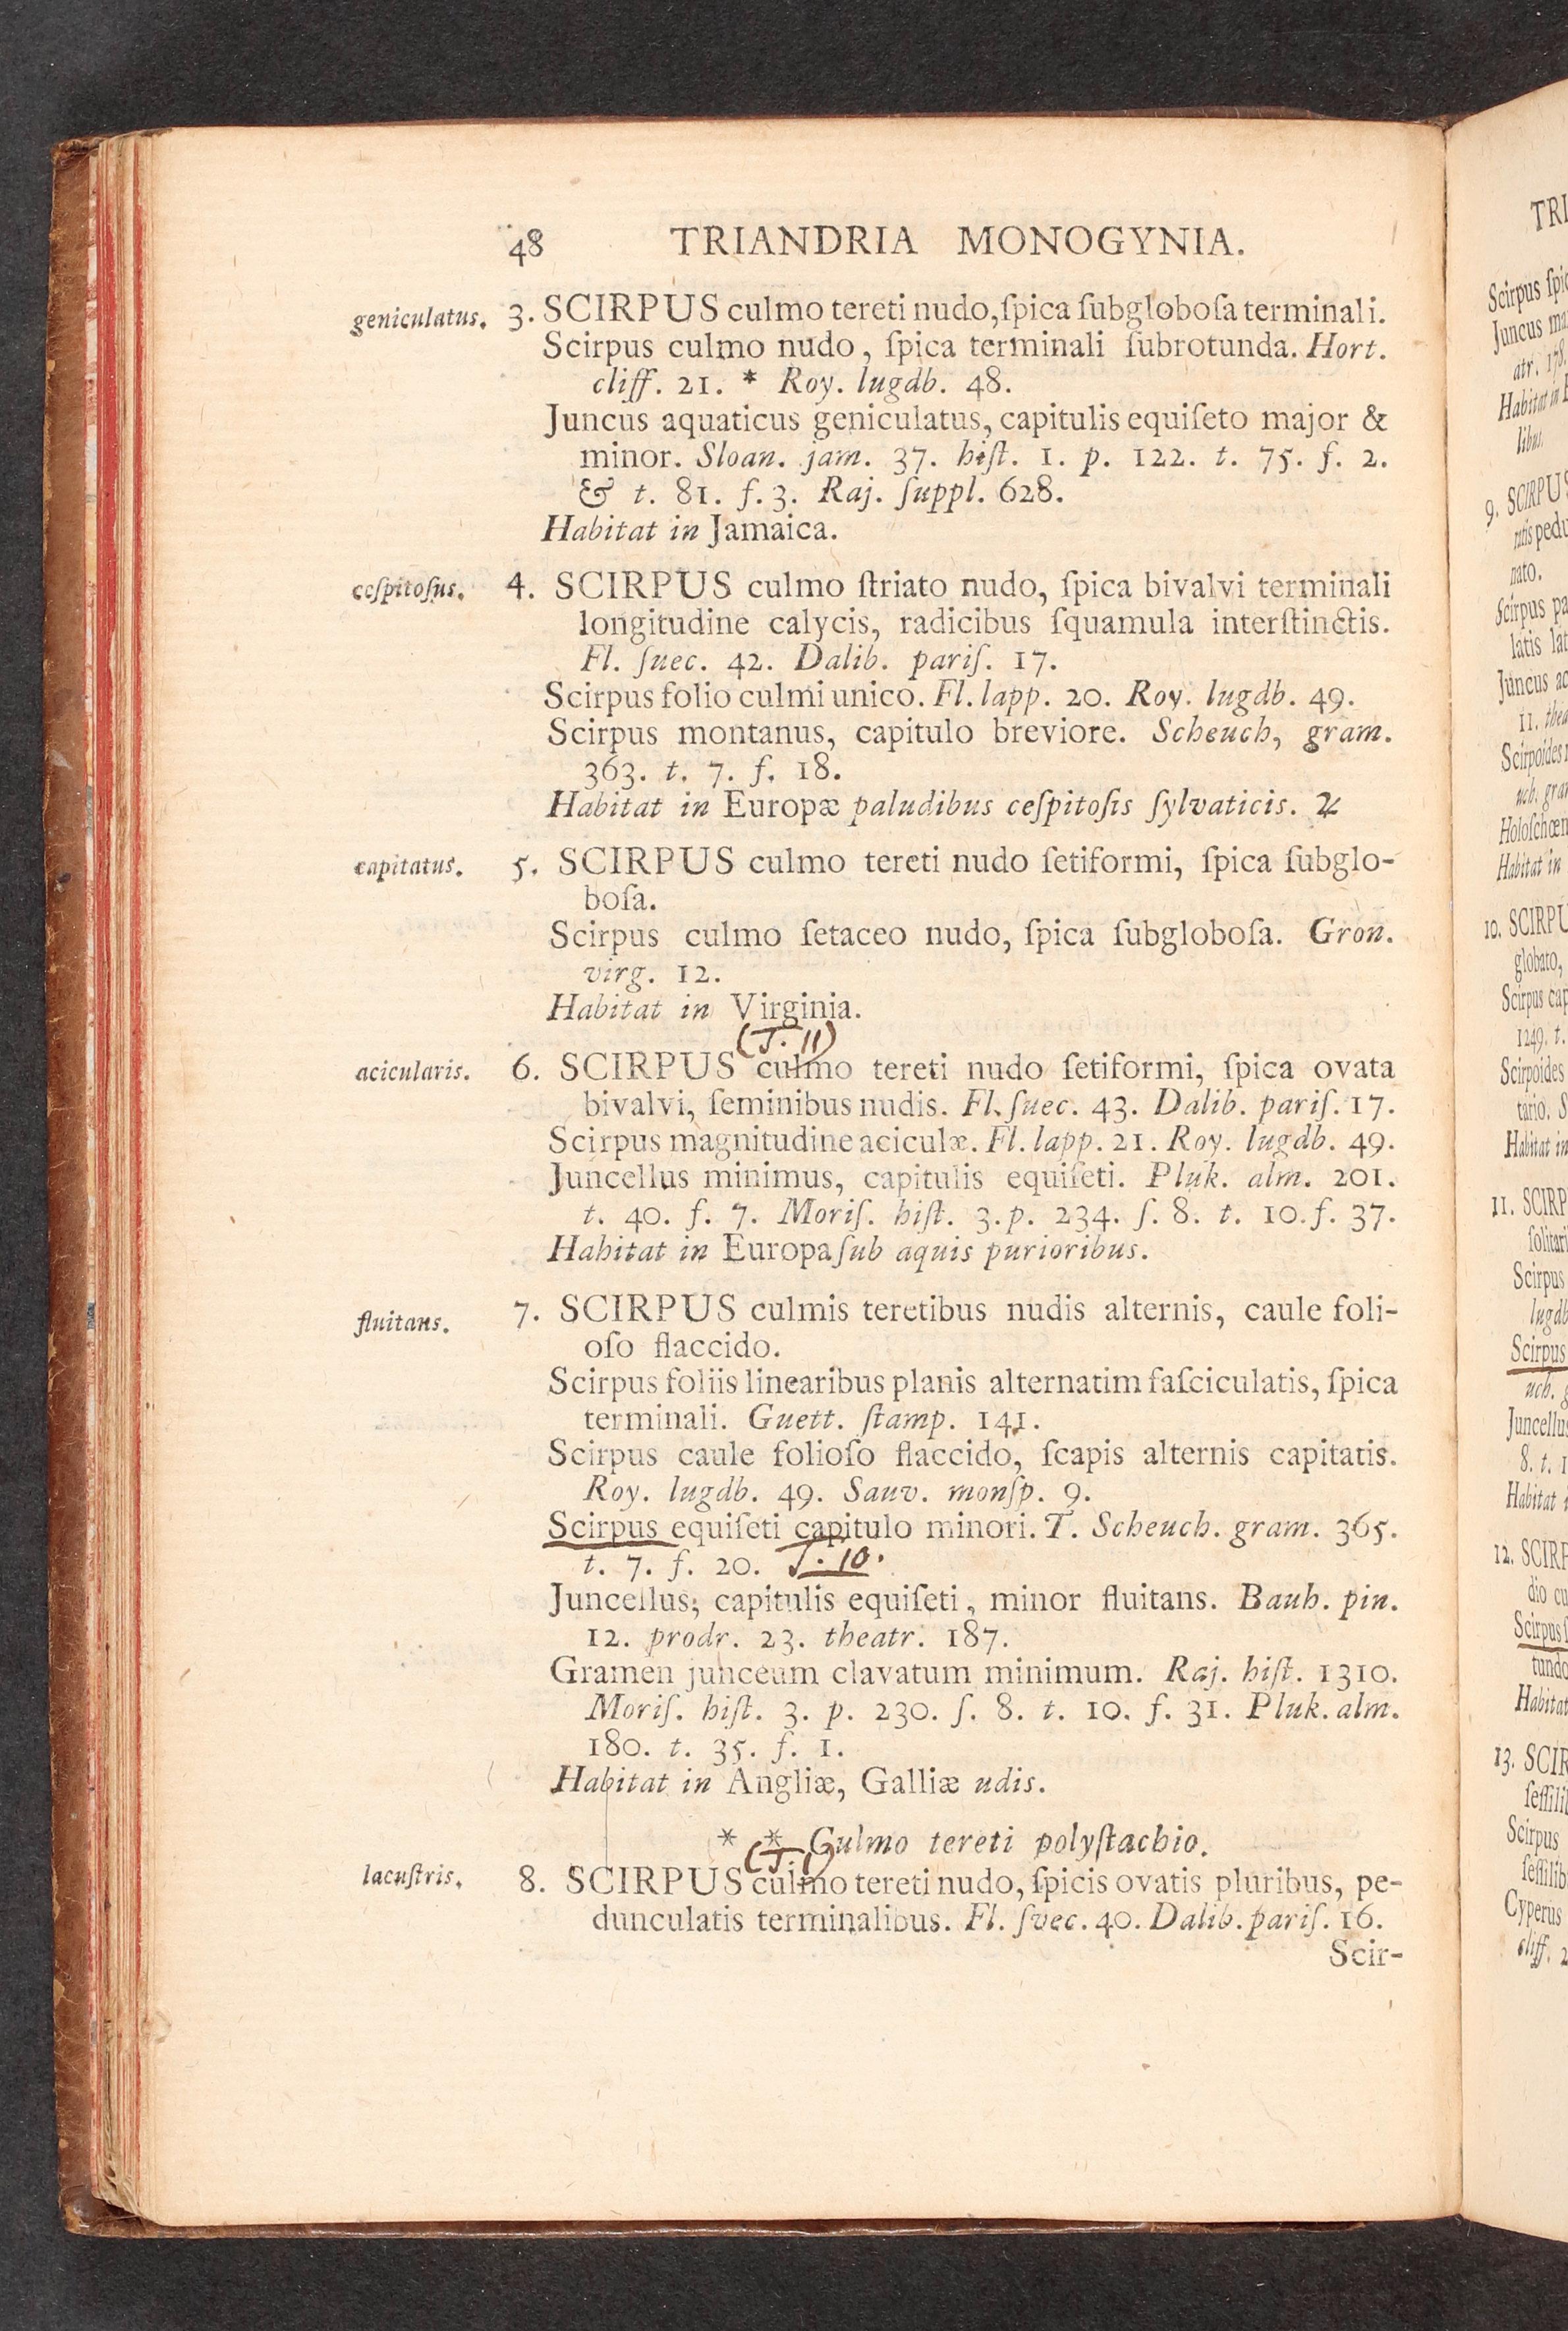 48 TRIANDRIA MONOGYNIA.
geniculatus. 3. SCIRPUS culmo tereti nudo, ſpica ſubgloboſa terminali.
Scirpus culmo nudo, ſpica terminali ſubrotunda. Hort.
cliff. 21. * Roy. lugdb. 48.
Juncus aquaticus geniculatus, capitulis equiſeto major &
minor. Sloan. jam. 37. hiſt. 1. p. 122. t. 75. f. 2.
& t. 81. f. 3. Raj. ſuppl. 628.
Habitat in Jamaica.
ceſpitoſus. 4. SCIRPUS culmo ſtriato nudo, ſpica bivalvi terminali
longitudine calycis, radicibus ſquamula interſtinctis.
Fl. ſuec. 42. Dalib. pariſ. 17.
Scirpus folio culmi unico. Fl. lapp. 20. Roy. lugdb. 49.
Scirpus montanus, capitulo breviore. Scheuch, gram.
363. t. 7. f. 18.
Habitat in Europæ paludibus ceſpitoſis ſylvaticis. ♃
capitatus. 5. SCIRPUS culmo tereti nudo ſetiformi, ſpica ſubglo-
boſa.
Scirpus culmo ſetaceo nudo, ſpica ſubgloboſa. Gron.
virg. 12.
Habitat in Virginia.
(T. 11)
acicularis. 6. SCIRPUS culmo tereti nudo ſetiformi, ſpica ovata
bivalvi, ſeminibus nudis. Fl. ſuec. 43. Dalib. pariſ. 17.
Scirpus magnitudine aciculæ. Fl. lapp. 21. Roy. lugdb. 49.
Juncellus minimus, capitulis equiſeti. Pluk. alm. 201.
t. 40. f. 7. Moriſ. hiſt. 3. p. 234. ſ. 8. t. 10. f. 37.
Habitat in Europa ſub aquis purioribus.
fluitans. 7. SCIRPUS culmis teretibus nudis alternis, caule foli-
oſo flaccido.
Scirpus foliis linearibus planis alternatim faſciculatis, ſpica
terminali. Guett. ſtamp. 141.
Scirpus caule folioſo flaccido, ſcapis alternis capitatis.
Roy. lugdb. 49. Sauv. monſp. 9.
Scirpus equiſeti capitulo minori. T. Scheuch. gram. 365.
t. 7. f. 20. T. 10.
Juncellus; capitulis equiſeti, minor fluitans. Bauh. pin.
12. prodr. 23. theatr. 187.
Gramen junceum clavatum minimum. Raj. hiſt. 1310.
Moriſ. hiſt. 3. p. 230. ſ. 8. t. 10. f. 31. Pluk. alm.
180. t. 35. f. 1.
Habitat in Angliæ, Galliæ udis.
* * Culmo tereti polyſtachio.
(T. 1)
lacuſtris. 8. SCIRPUS culmo tereti nudo, ſpicis ovatis pluribus, pe-
dunculatis terminalibus. Fl. ſvec. 40. Dalib. pariſ. 16.
Scir-
TRI
Scirpus ſpic
Juncus ma
atr. 178.
Habitat in
libus.
9. SCIRPUS
pedu
nato.
Scirpus pa
latis lat
Juncus ac
11. thea
Scirpoides
uch. gra
Holoſchœn
Habitat in
10. SCIRPU
globato,
Scirpus cap
1249. t.
Scirpoides
tario. S
Habitat in
11. SCIRP
ſolitari
Scirpus
lugdb
Scirpus
uch. g
Juncellus
8. t. 1
Habitat i
12. SCIRP
dio cu
Scirpus
tundo
Habitat
13. SCIR
ſeſſili
Scirpus
ſeſſilib
Cyperus
cliff. 2